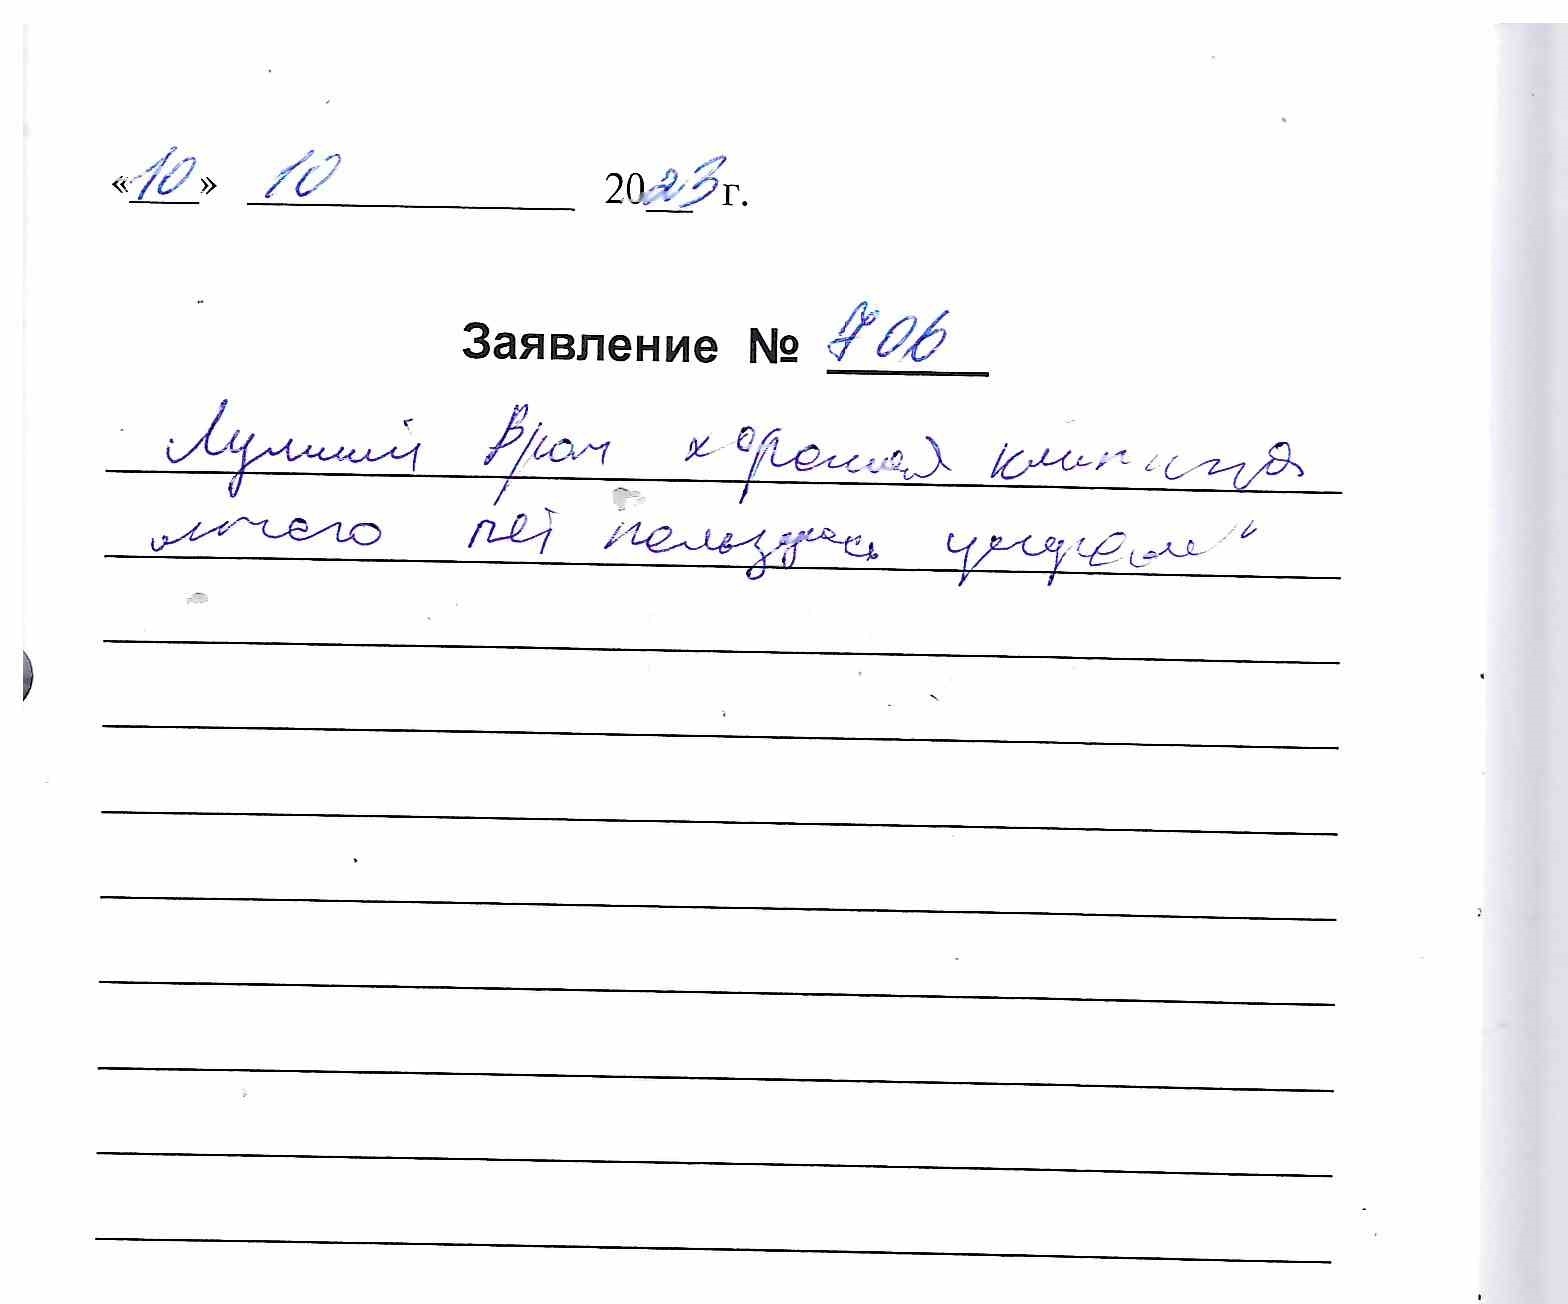 «10» 10 2023 г.
Заявление № 706
Лучший врач хорошая клиника
нет пользуюсь